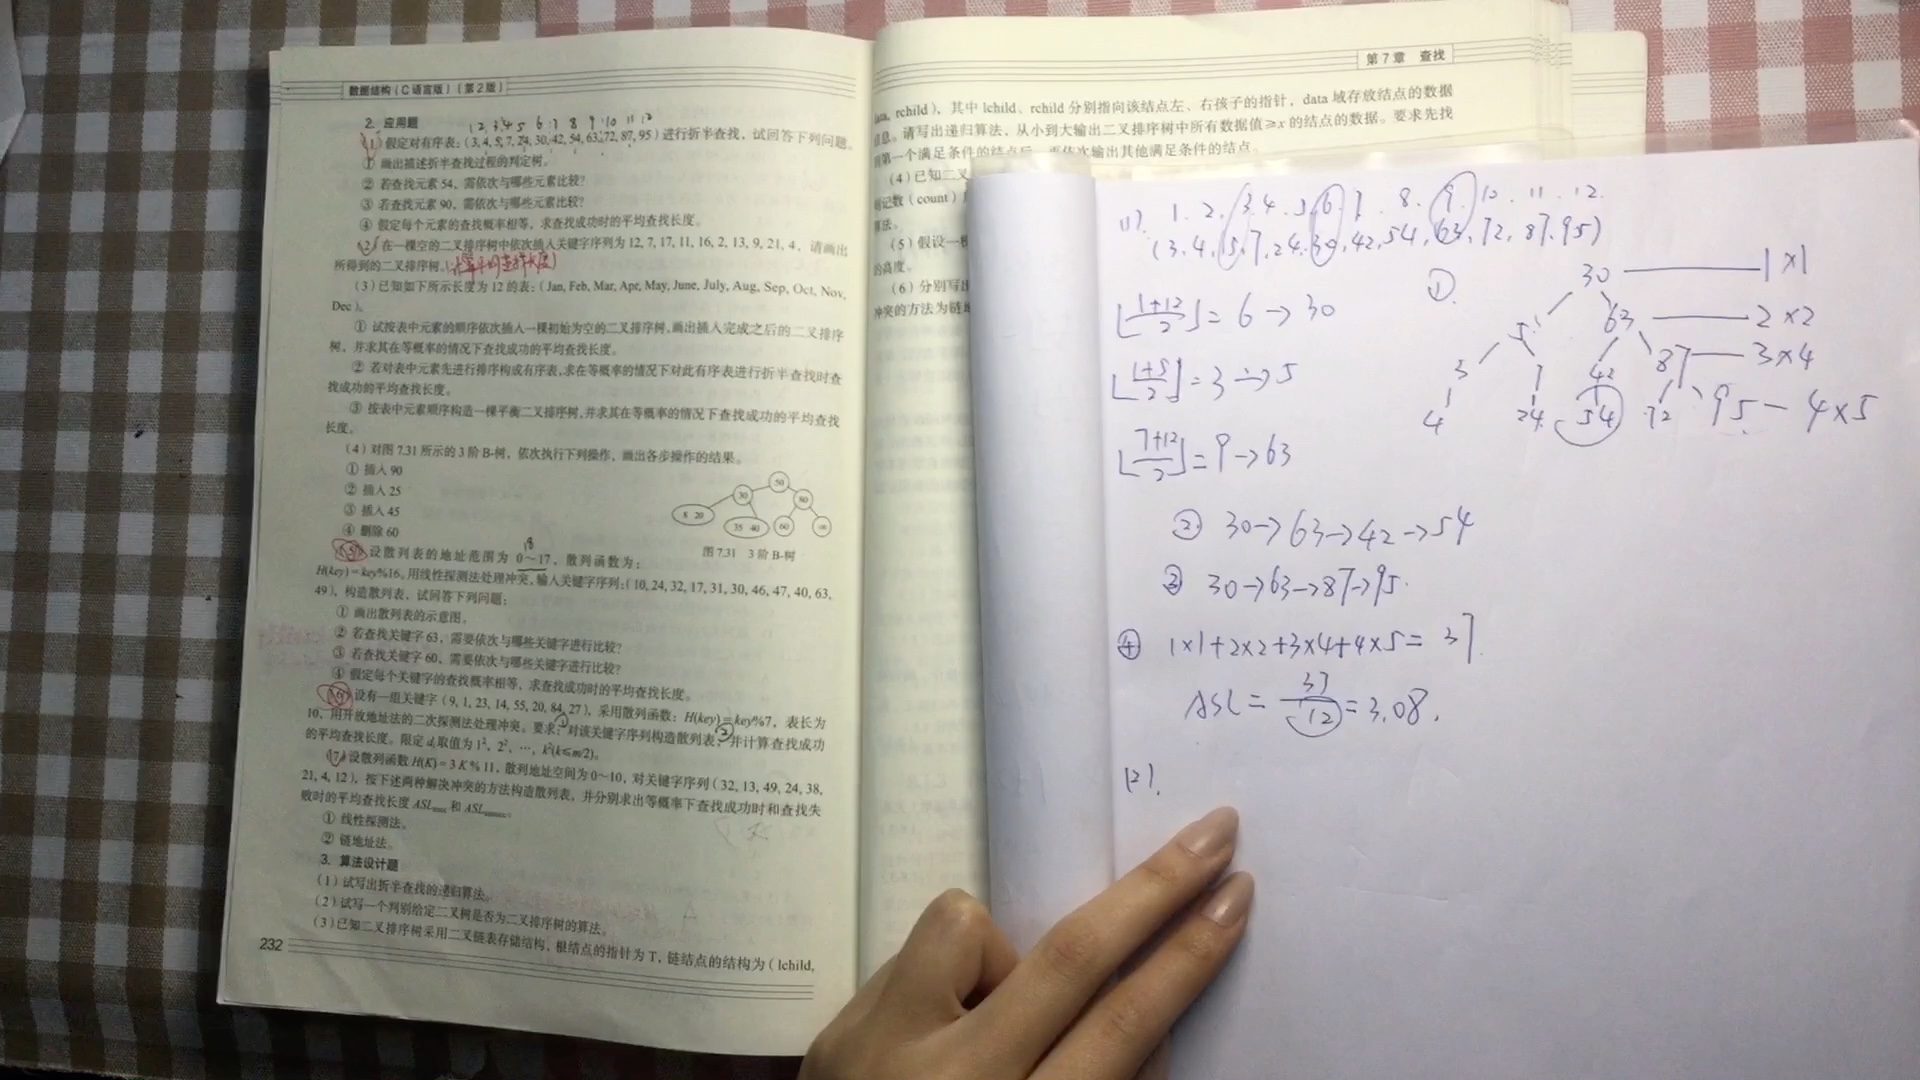 数据结构(C语言版)(第2版)
2. 应用题
1 2 3 4 5 6 7 8 9 10 11 12
(1)假定对有序表:(3, 4, 5, 7, 24, 30, 42, 54, 63, 72, 87, 95)进行折半查找,试回答下列问题。
① 画出描述折半查找过程的判定树。
② 若查找元素54,需依次与哪些元素比较?
③ 若查找元素90,需依次与哪些元素比较?
④ 假定每个元素的查找概率相等,求查找成功时的平均查找长度。
(2)在一棵空的二叉排序树中依次插入关键字序列为12, 7, 17, 11, 16, 2, 13, 9, 21, 4,请画出
所得到的二叉排序树。(计算平均查找长度)
(3)已知如下所示长度为12的表:(Jan, Feb, Mar, Apr, May, June, July, Aug, Sep, Oct, Nov,
Dec)。
① 试按表中元素的顺序依次插入一棵初始为空的二叉排序树,画出插入完成之后的二叉排序
树,并求其在等概率的情况下查找成功的平均查找长度。
② 若对表中元素先进行排序构成有序表,求在等概率的情况下对此有序表进行折半查找时查
找成功的平均查找长度。
③ 按表中元素顺序构造一棵平衡二叉排序树,并求其在等概率的情况下查找成功的平均查找
长度。
(4)对图7.31所示的3阶B-树,依次执行下列操作,画出各步操作的结果。
① 插入90
② 插入25
③ 插入45
④ 删除60
50
30 80
8 20 35 40 60
图7.31 3阶B-树
18
(5)设散列表的地址范围为0~17,散列函数为:
H(key)=key%16。用线性探测法处理冲突,输入关键字序列:(10, 24, 32, 17, 31, 30, 46, 47, 40, 63,
49),构造散列表,试回答下列问题:
① 画出散列表的示意图。
② 若查找关键字63,需要依次与哪些关键字进行比较?
③ 若查找关键字60,需要依次与哪些关键字进行比较?
④ 假定每个关键字的查找概率相等,求查找成功时的平均查找长度。
(6)设有一组关键字(9, 1, 23, 14, 55, 20, 84, 27),采用散列函数:H(key)=key%7,表长为
10,用开放地址法的二次探测法处理冲突。要求:①对该关键字序列构造散列表,②并计算查找成功
的平均查找长度。限定di取值为1², 2², …, k²(k≤m/2)。
(7)设散列函数H(K)=3K%11,散列地址空间为0~10,对关键字序列(32, 13, 49, 24, 38,
21, 4, 12),按下述两种解决冲突的方法构造散列表,并分别求出等概率下查找成功时和查找失
败时的平均查找长度ASLsucc和ASLunsucc。
① 线性探测法。
② 链地址法。
3. 算法设计题
(1)试写出折半查找的递归算法。
(2)试写一个判别给定二叉树是否为二叉排序树的算法。
(3)已知二叉排序树采用二叉链表存储结构,根结点的指针为T,链结点的结构为(lchild,
232
第7章 查找
data, rchild),其中lchild、rchild分别指向该结点左、右孩子的指针,data域存放结点的数据
信息。请写出递归算法,从小到大输出二叉排序树中所有数据值≥x的结点的数据。要求先找
到第一个满足条件的结点后,再依次输出其他满足条件的结点。
(4)已知二叉
记数(count)
算法。
(5)假设一棵
的高度。
(6)分别写出
冲突的方法为链地
(1). 1. 2. 3. 4. 5. 6. 7. 8. 9. 10. 11. 12.
(3. 4. 5. 7. 24. 30, 42, 54, 63, 72, 87, 95)
⌊(1+12)/2⌋ = 6 → 30
⌊(1+5)/2⌋ = 3 → 5
⌊(7+12)/2⌋ = 9 → 63
①.
30 — 1×1
5 63 — 2×2
3 7 42 87 — 3×4
4 24 54 72 95 — 4×5
② 30→63→42→54
③ 30→63→87→95.
④ 1×1+2×2+3×4+4×5= 37.
ASL = 37/12 = 3.08.
(2).